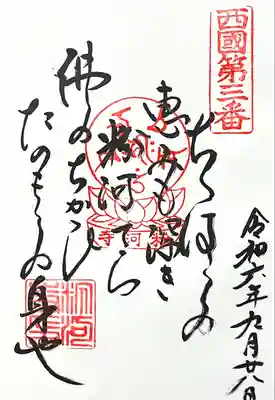 西國第三番
令和六年九月廿八日
ちゝはゝの
恵みも深き
粉河てら
佛のちかひ
たのもしの身や
粉河寺